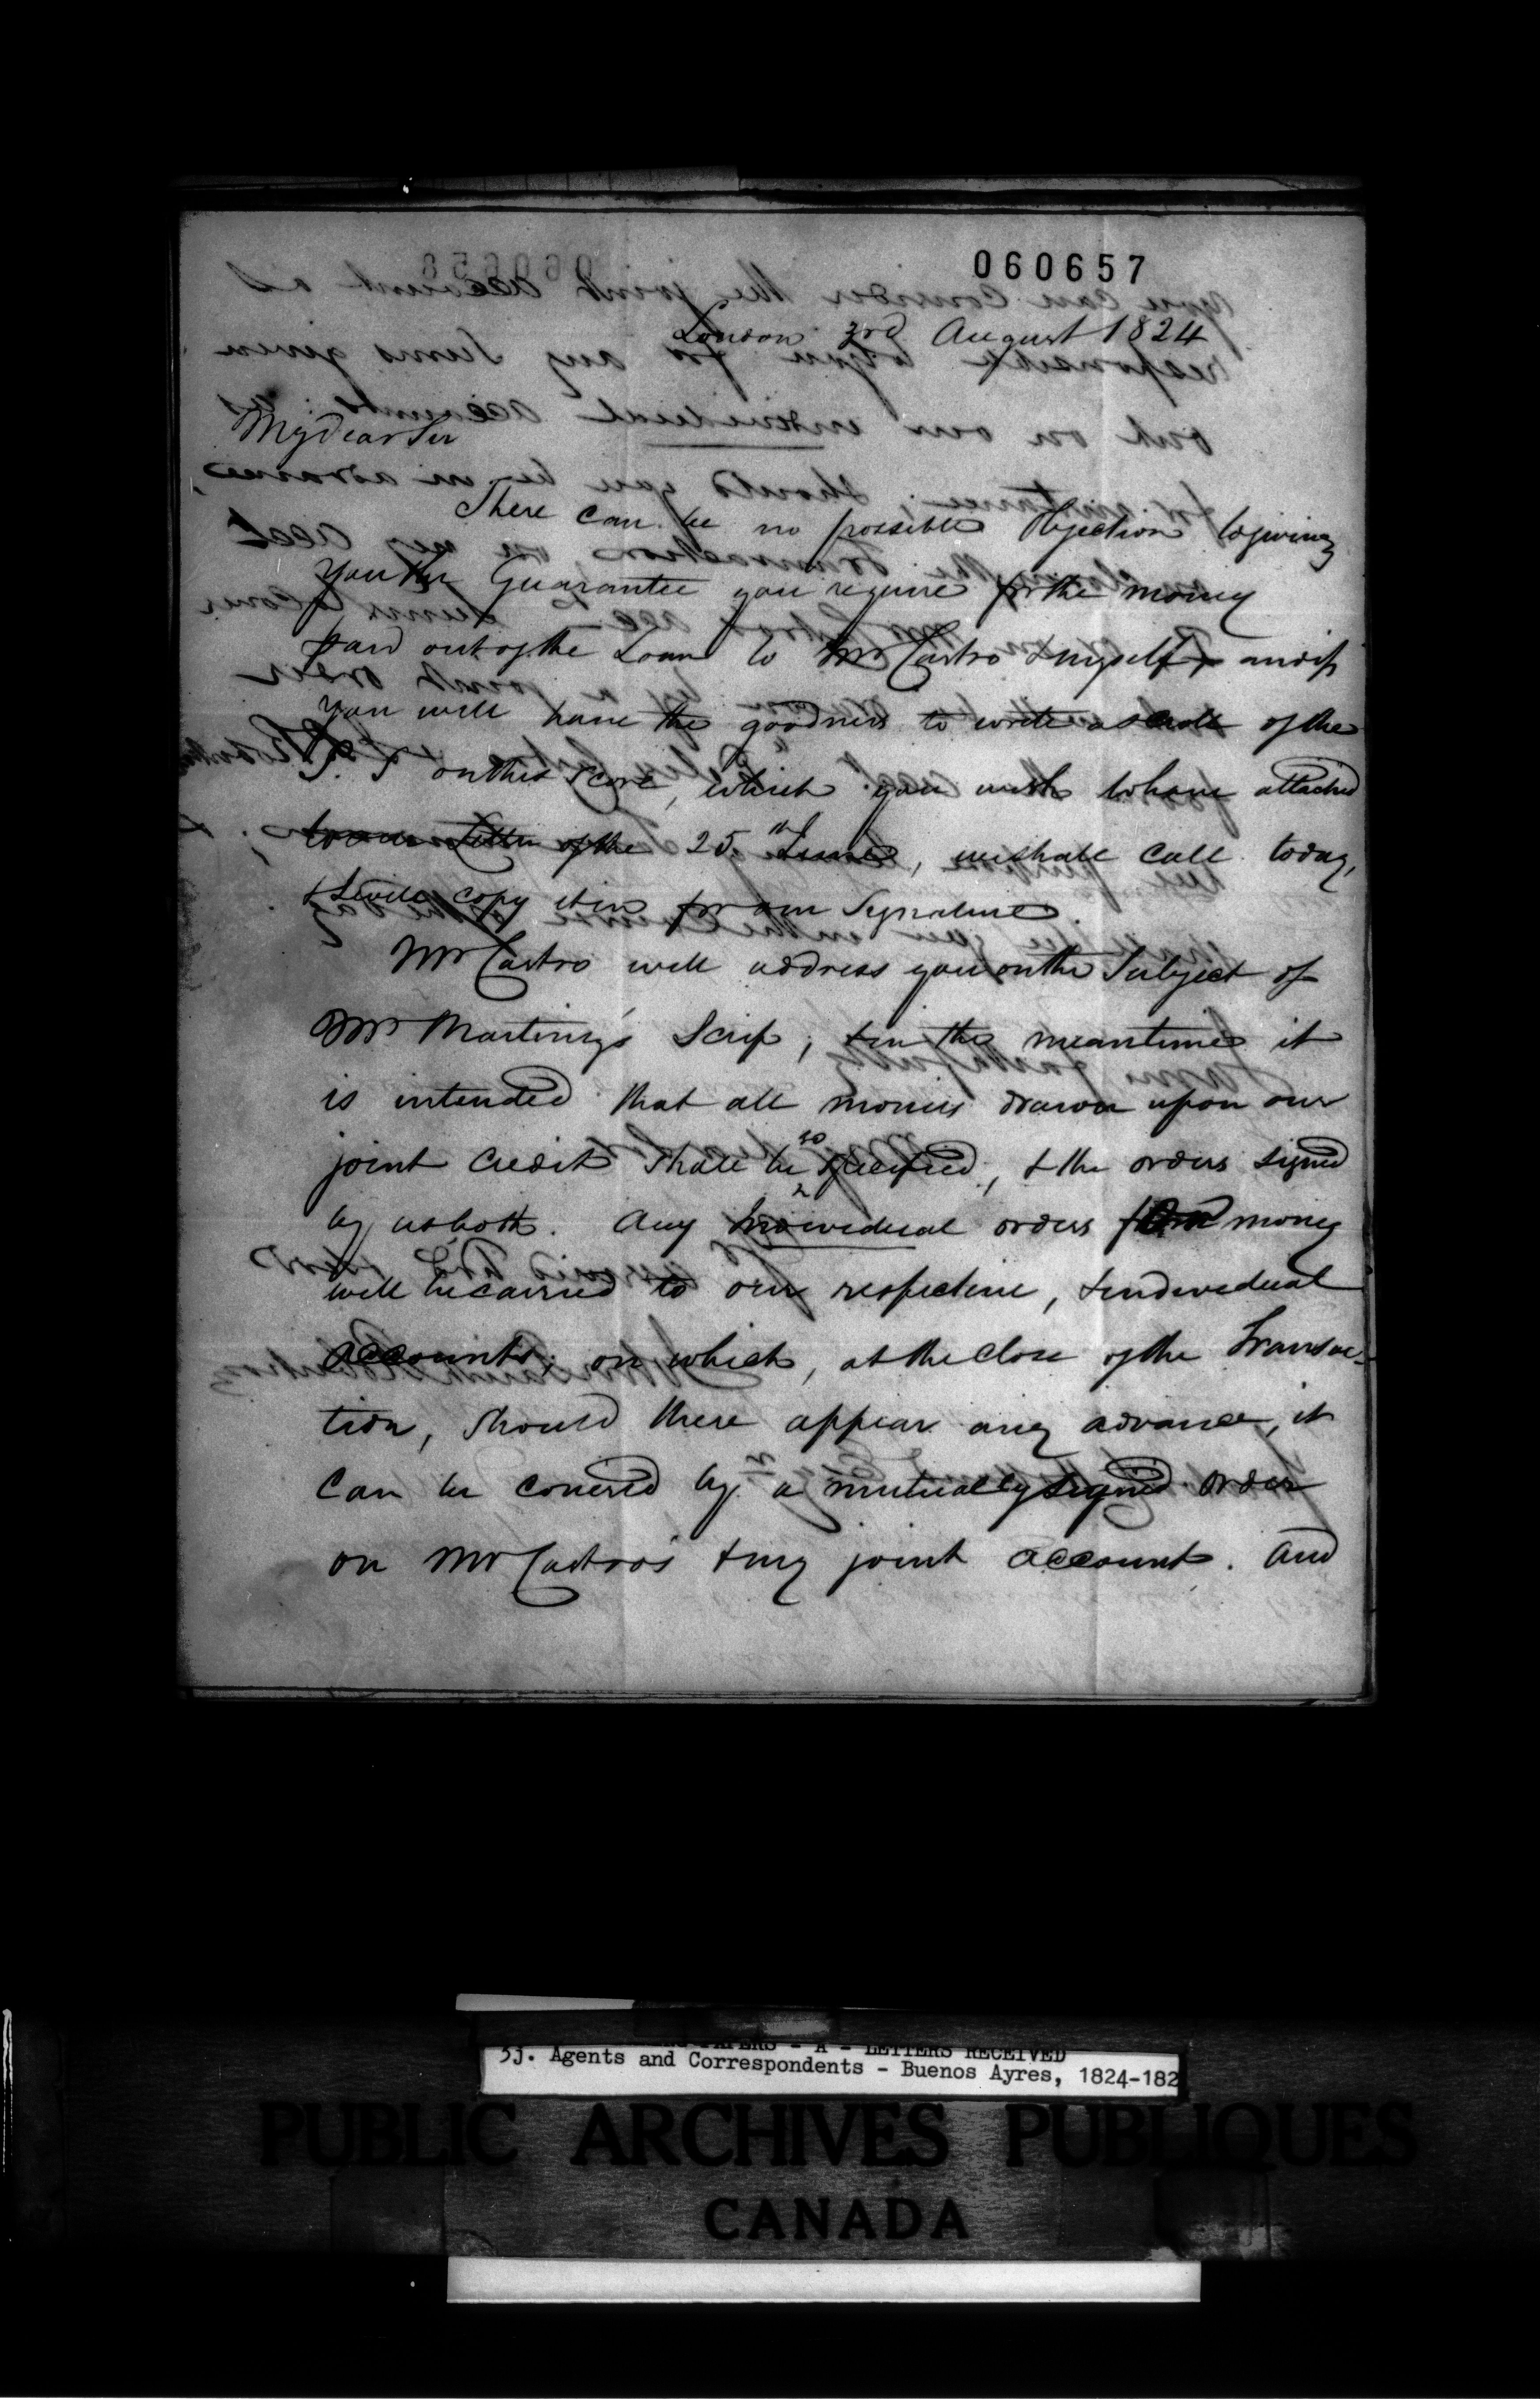 060657
London 3rd August 1824
My dear Sir
There can be no possible Objection to giving
you the Guarantee you require for the money
paid out of the Loan to Mr Castro & myself, and if
you will have the goodness to write a scroll of the
P. S on this score, which you wish to have attached
to our Letter of the 25th June, we shall call today,
& I will copy it in for our Signature.
Mr Castro will address you on the Subject of
Mr Martinez's Scrip; & in the meantime it
is intended that all monies drawn upon our
joint Credit shall be so specified, & the orders signed
by us both. Any Individual orders for money
will be carried to our respective, & individual
accounts; on which, at the close of the Transac-
tion, should there appear any advance, it
can be covered by a mutually signed order
on Mr Castro's & my joint account. And
PAPERS - A - LETTERS RECEIVED
3j. Agents and Correspondents - Buenos Ayres, 1824-182
PUBLIC ARCHIVES PUBLIQUES
CANADA